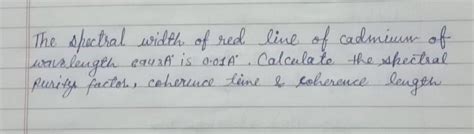 The spectral width of red line of cadmium of
wavelength 6943A° is 0.01A°. Calculate the spectral
purity factor, coherence time & coherence length